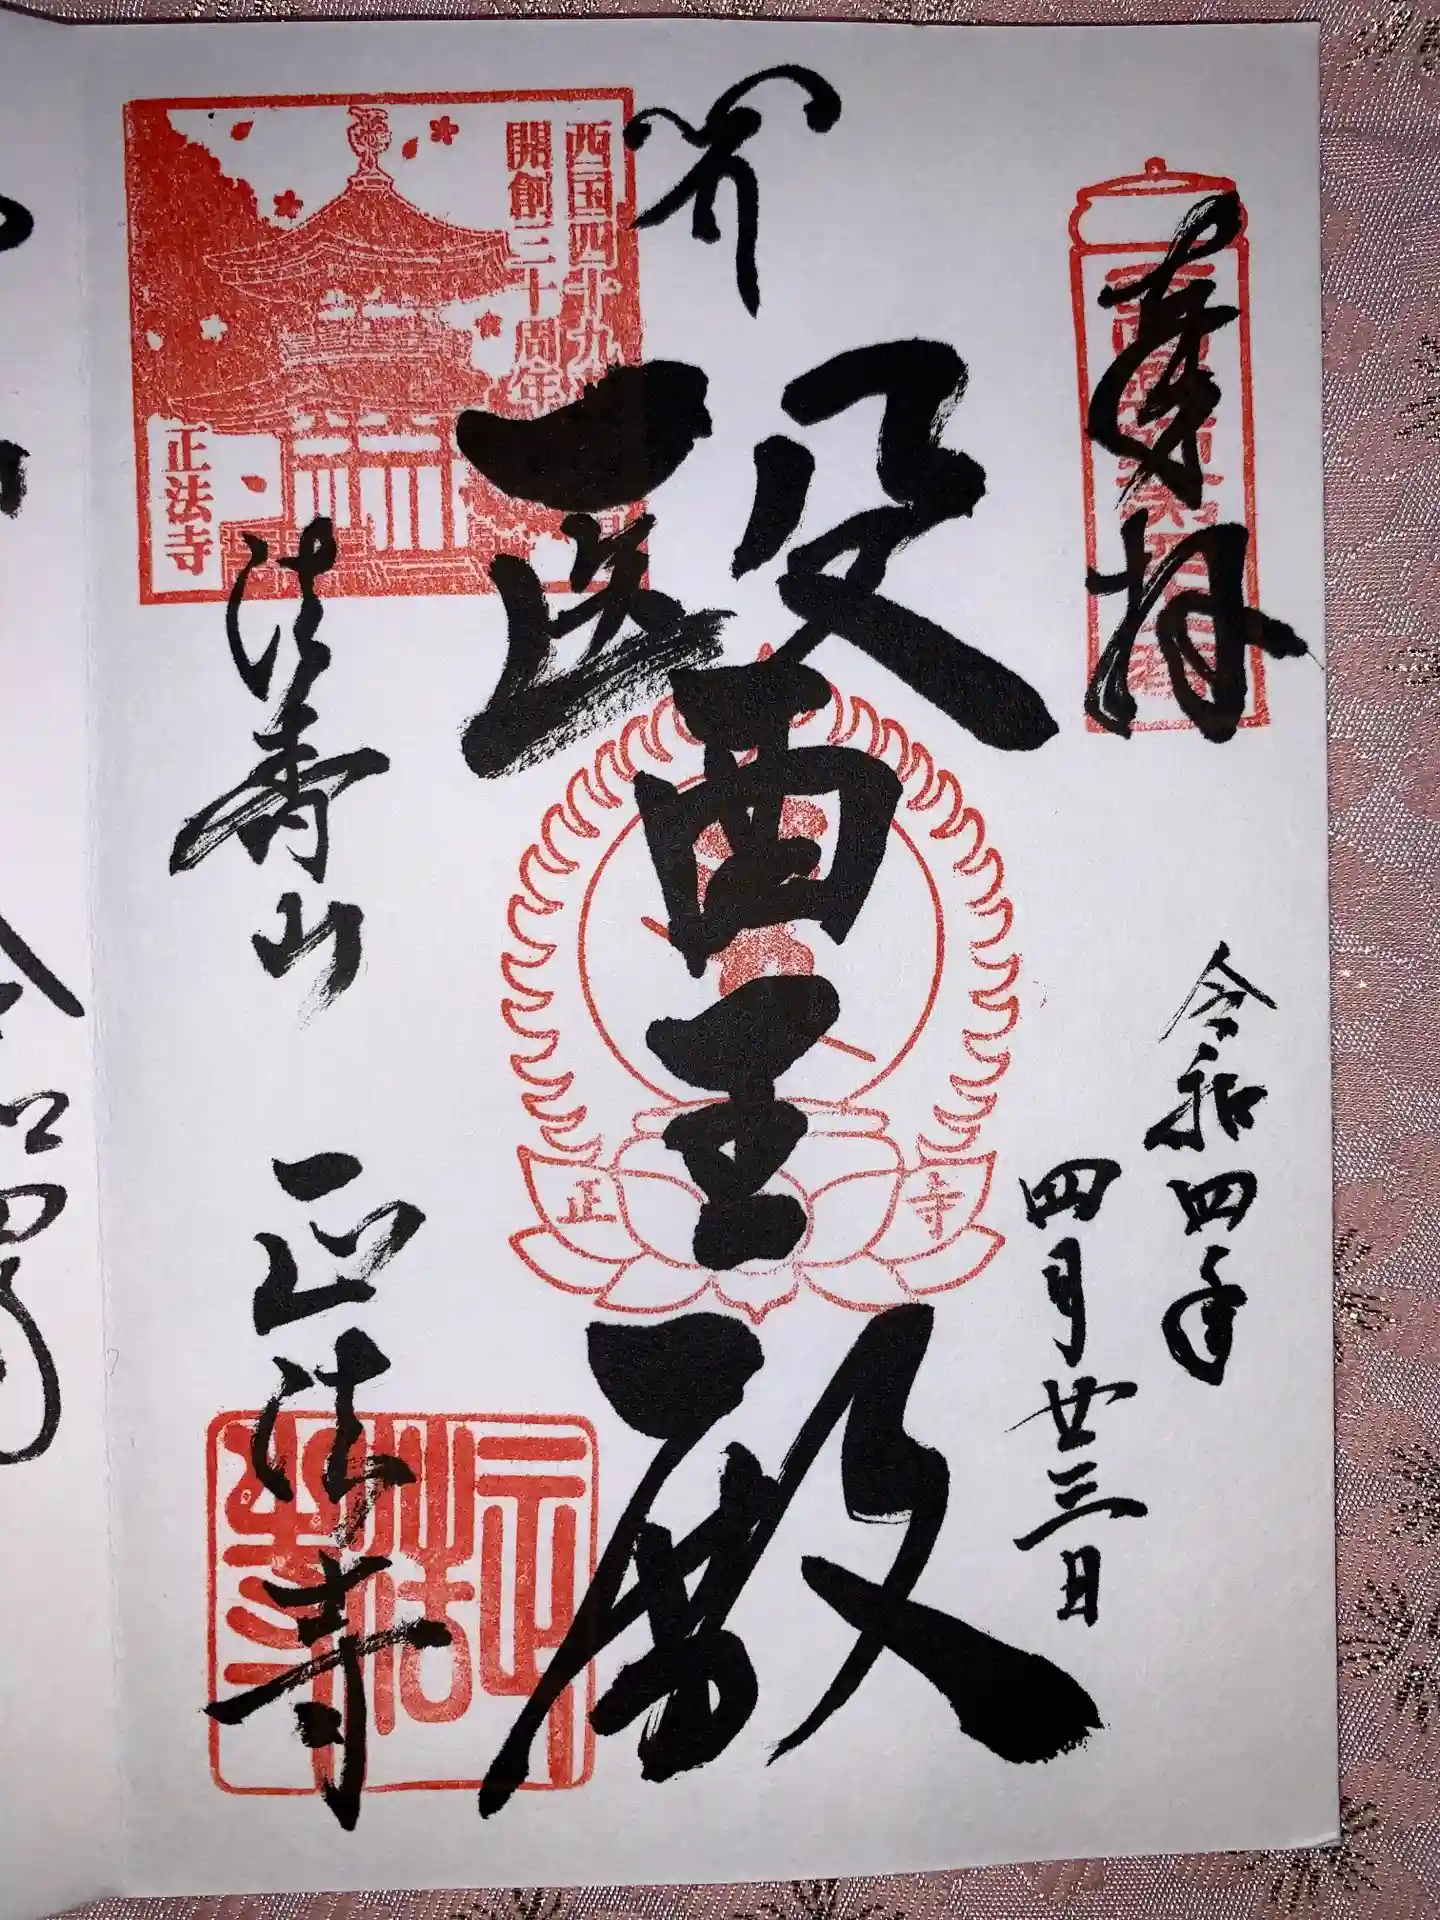 奉拝
令和四年
四月廿三日
醫王殿
西国四十九
開創三十周年
正法寺
法寿山
正法寺
正 寺
正法寺